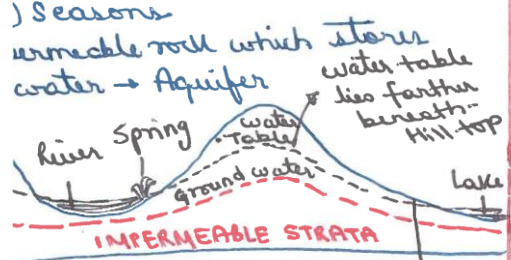 ) Seasons
ermeable rock which stores
water → Aquifer
water table
lies farther
beneath
Hill top
River
Spring
water
Table
Ground water
Lake
IMPERMEABLE STRATA